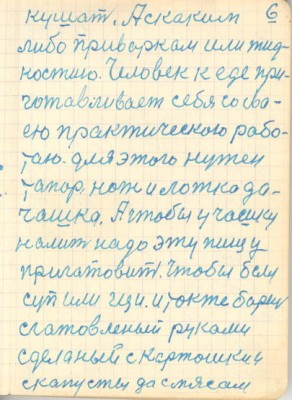 6
кушат. А скаким
либо приваркам или жид-
костию. Человек к еде при-
готавливает себя со сва-
ею практическою рабо-
таю. для этого нужен
тапор. нож и лотка да-
чашка. А чтобы у чашку
налит надо эту пищу
пригатовит. Чтобы бели
суп или щи. и также барщ
сгатовленый руками
сделаный скартошки и
скапусты да смясам